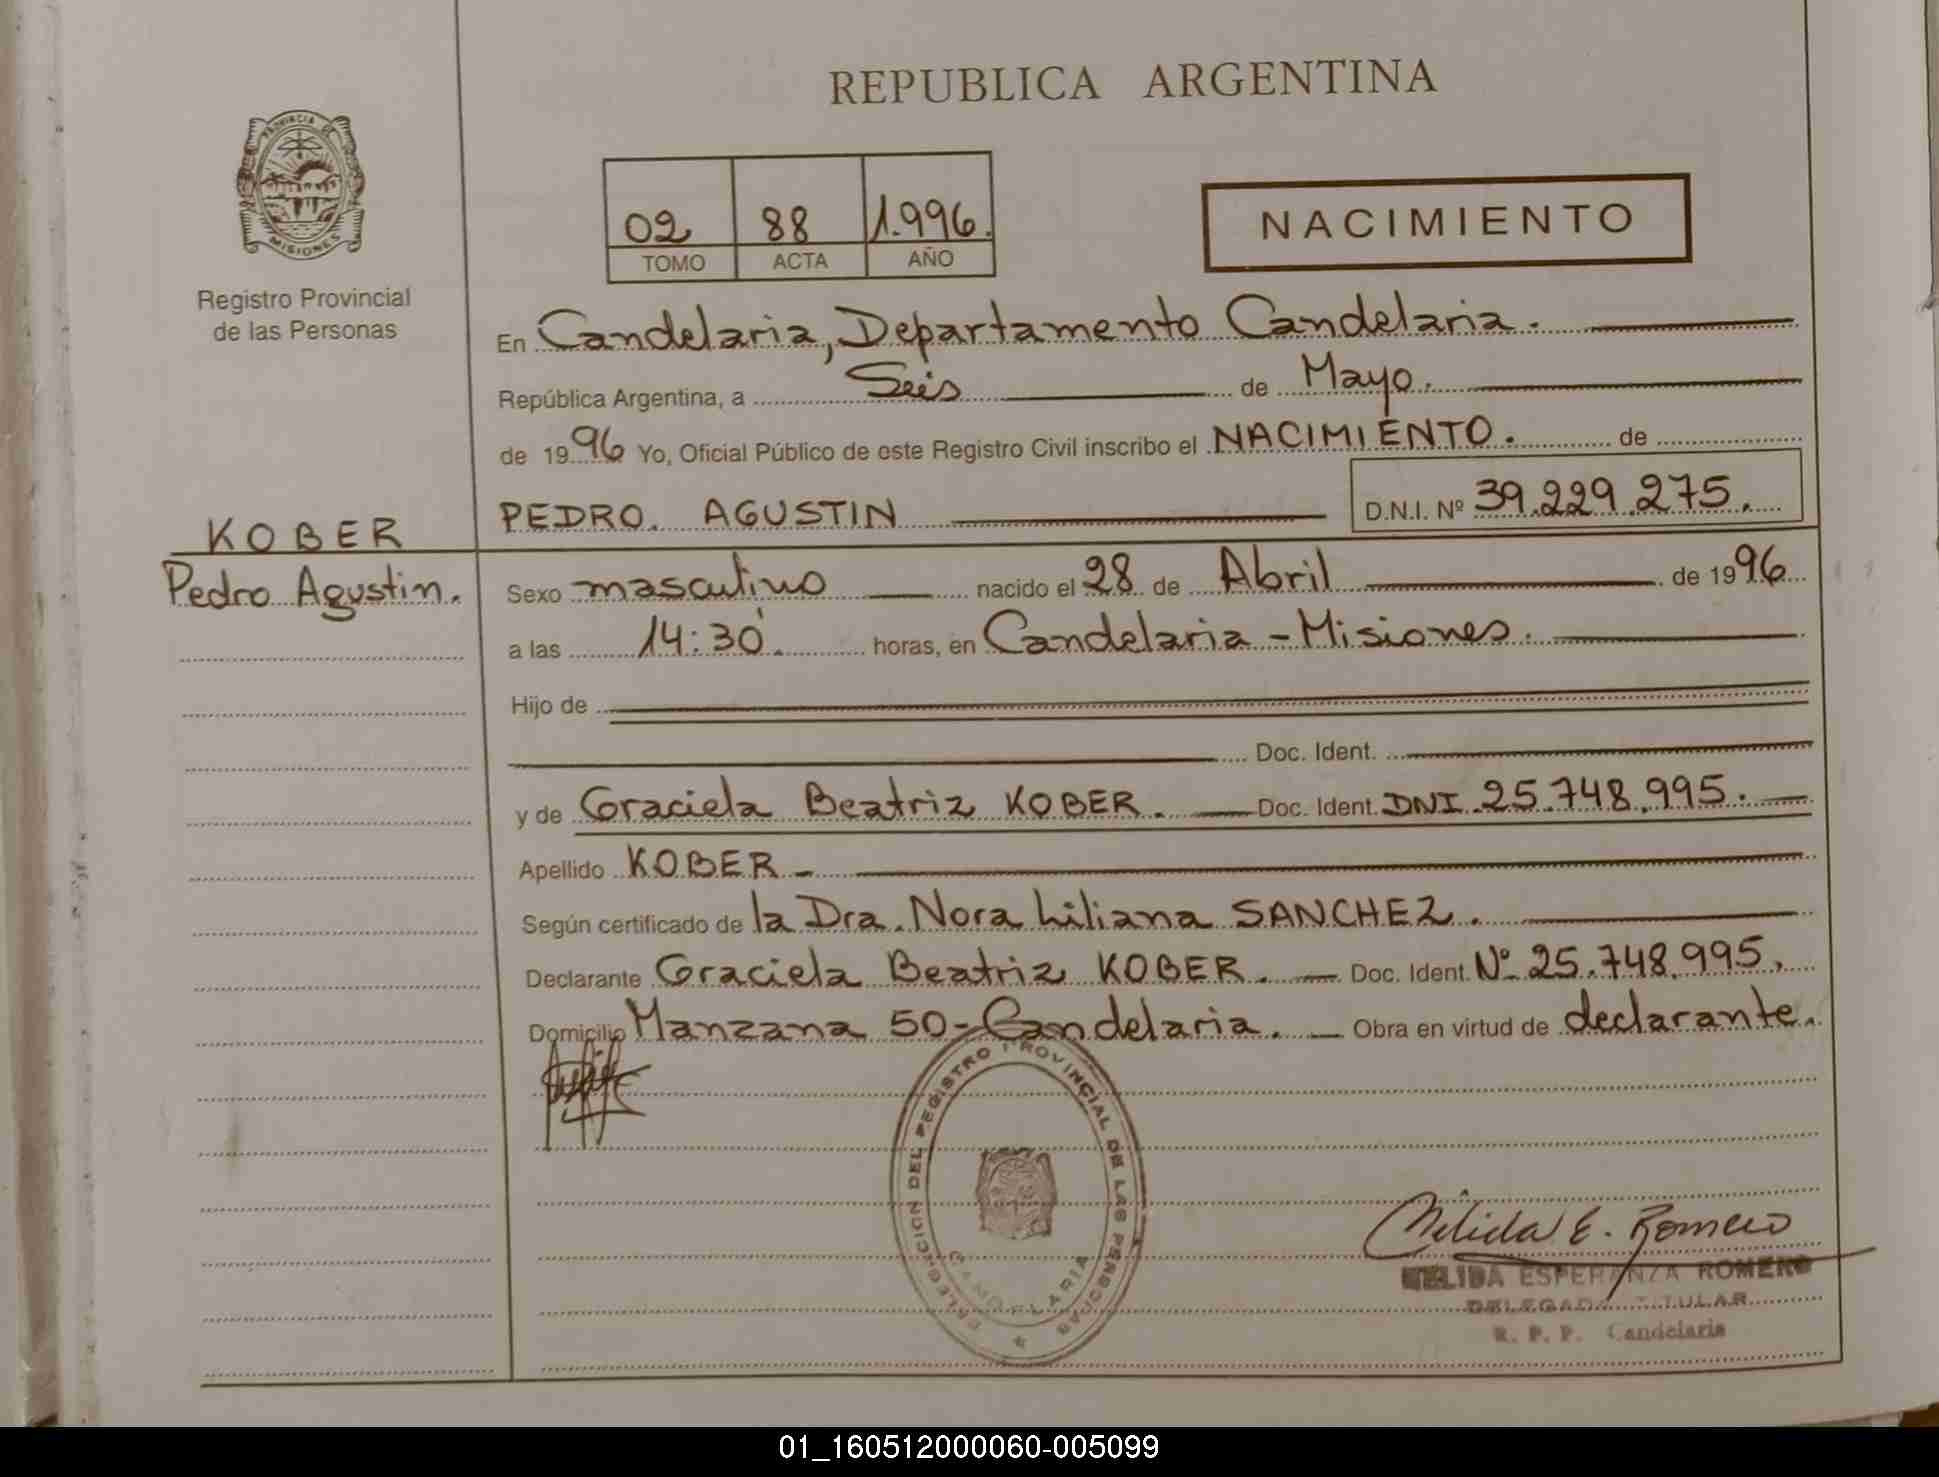 REPUBLICA ARGENTINA
PROVINCIA DE
MISIONES
Registro Provincial
de las Personas
02 88 1.996.
TOMO ACTA AÑO
NACIMIENTO
En Candelaria, Departamento Candelaria.
República Argentina, a Seis de Mayo.
de 1996 Yo, Oficial Público de este Registro Civil inscribo el NACIMIENTO. de
PEDRO. AGUSTIN D.N.I. Nº 39.229.275.
KOBER
Pedro Agustin.
Sexo masculino nacido el 28 de Abril de 1996
a las 14:30. horas, en Candelaria - Misiones.
Hijo de
Doc. Ident.
y de Graciela Beatriz KOBER. Doc. Ident. DNI 25.748.995.
Apellido KOBER -
Según certificado de la Dra. Nora Liliana SANCHEZ.
Declarante Graciela Beatriz KOBER. Doc. Ident. Nº 25.748.995.
Domicilio Manzana 50 - Candelaria. Obra en virtud de declarante.
DELEGACION DEL REGISTRO PROVINCIAL DE LAS PERSONAS
CANDELARIA
Nélida E. Romero
NELIDA ESPERANZA ROMERO
DELEGADA TITULAR
R. P. P. Candelaria
01_160512000060-005099